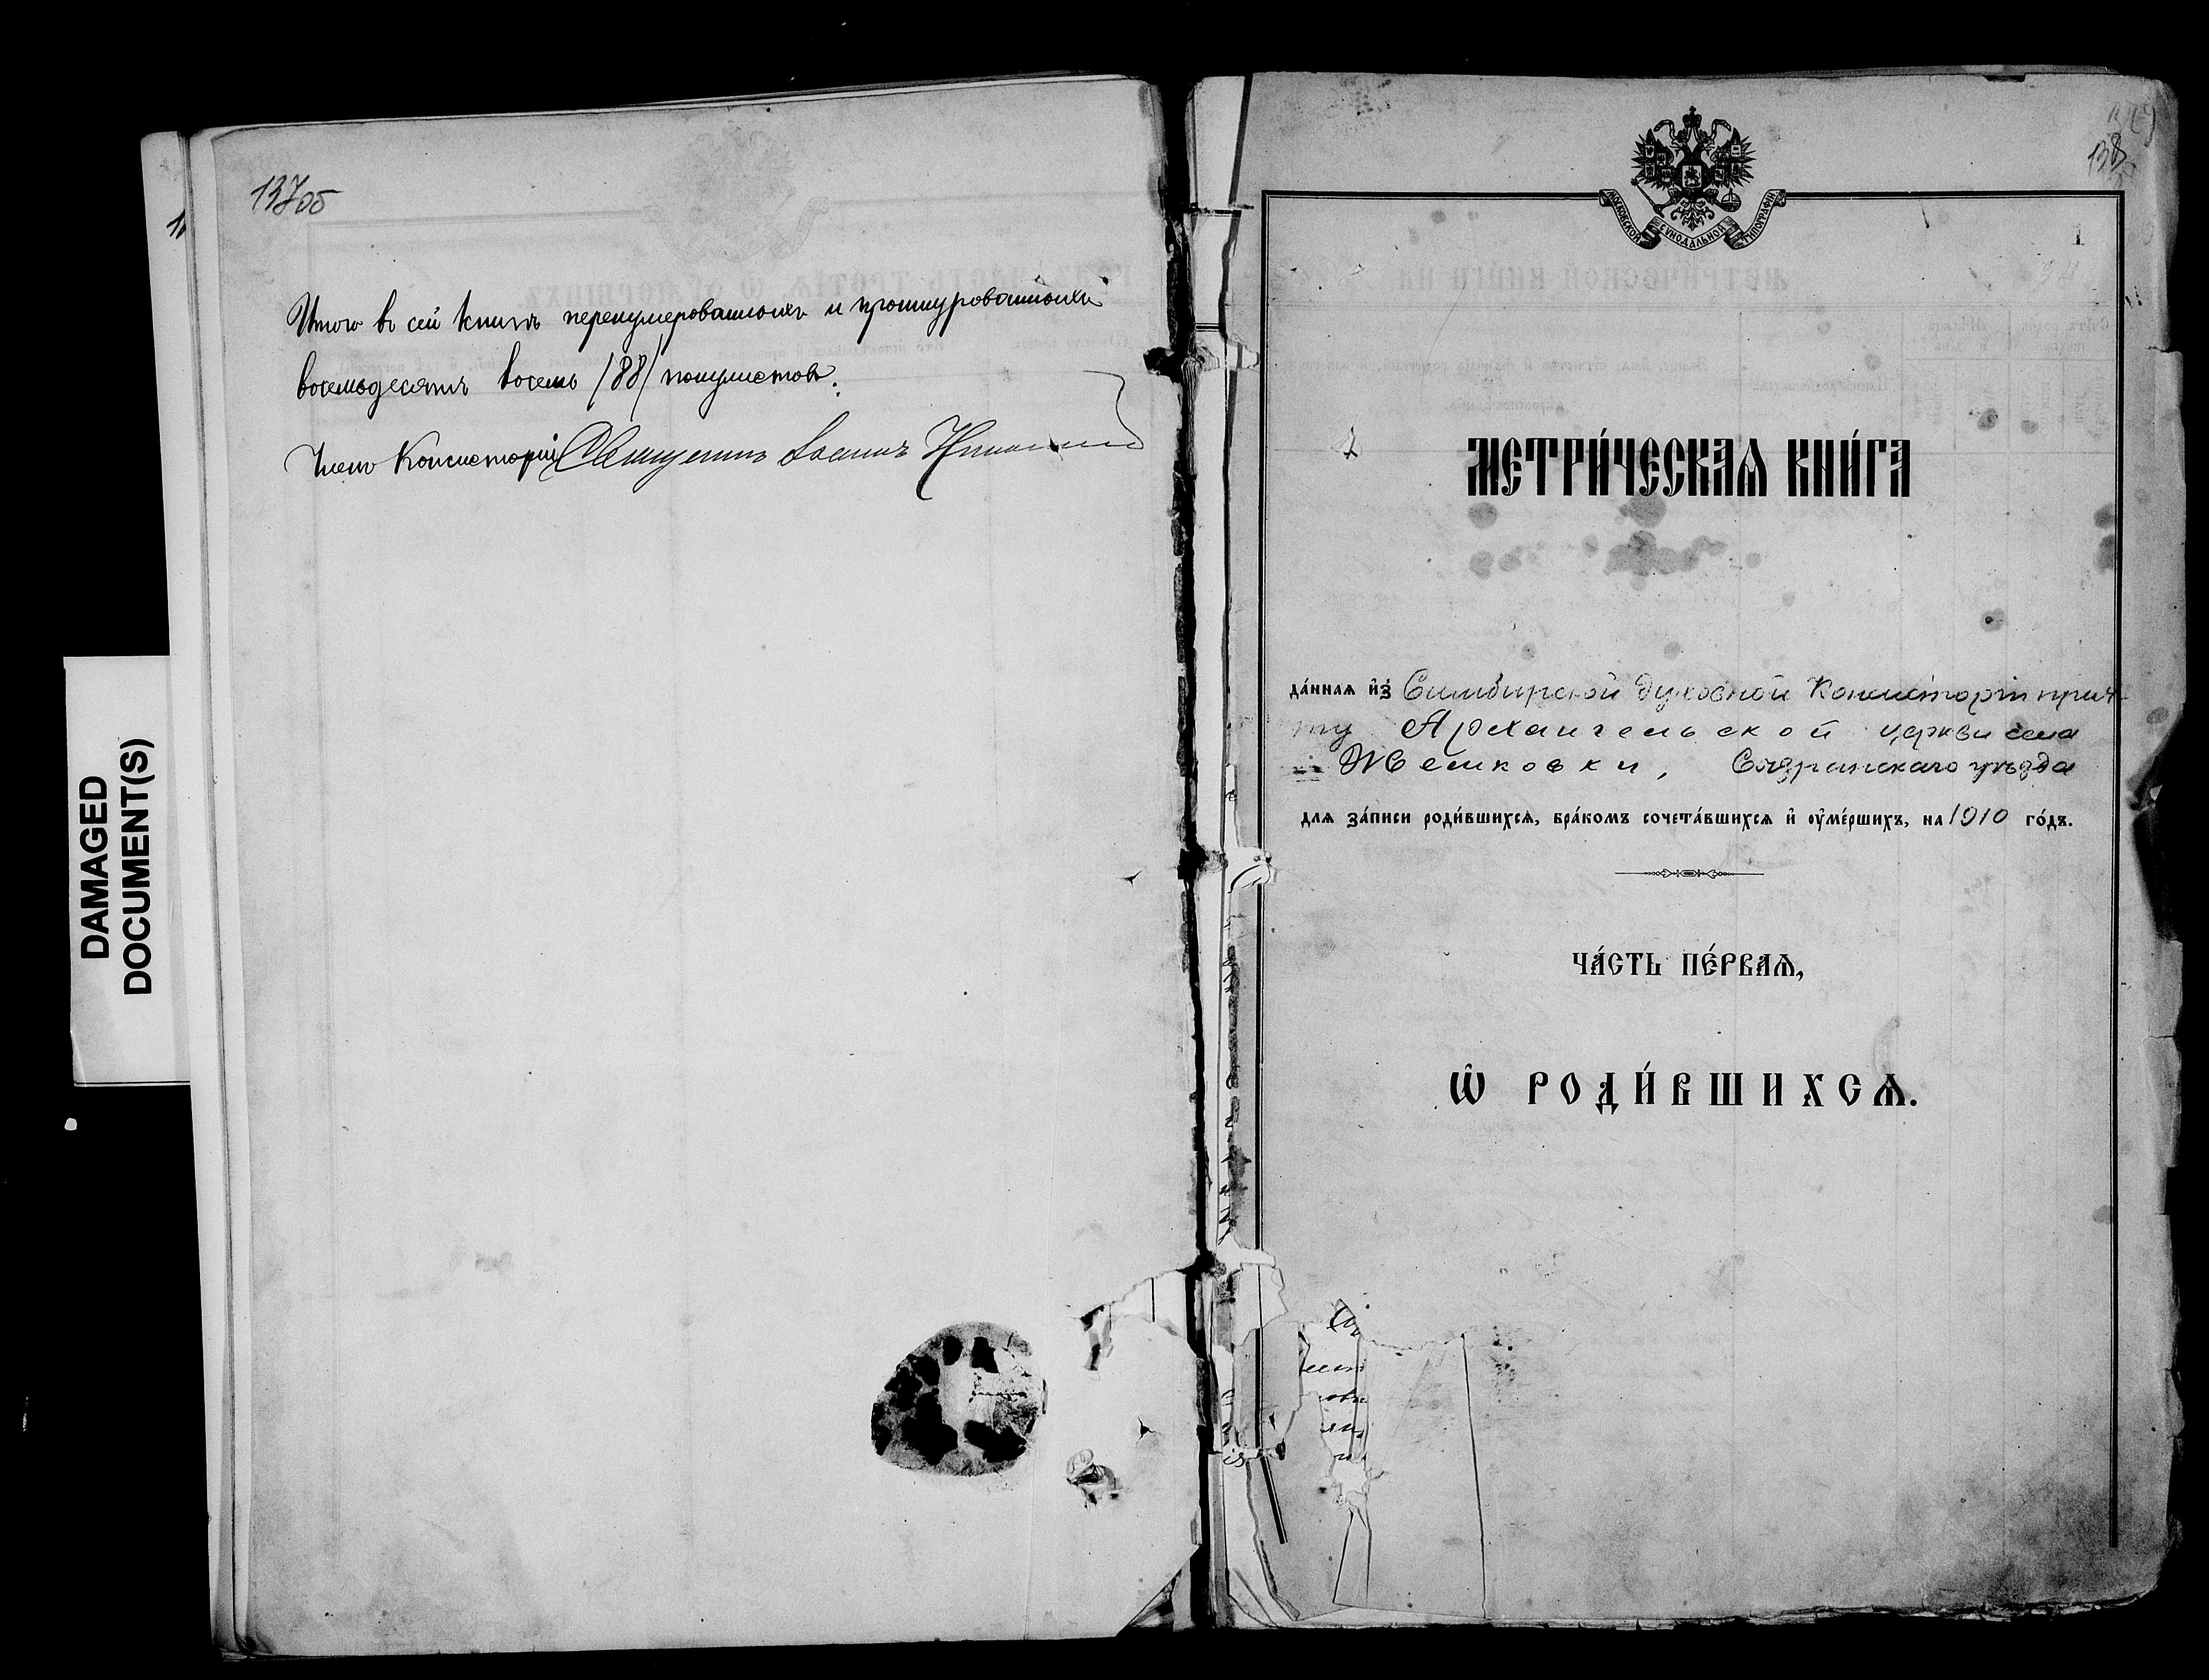 137об
Итого въ сей книгѣ перенумерованныхъ и прошнурованныхъ
восемьдесятъ восемь /88/ полулистовъ.
Членъ Консисторіи Священникъ Іоаннъ
DAMAGED
DOCUMENT(S)
138
МОСКОВСКОЙ СѴНОДАЛЬНОЙ ТИПОГРАФІИ
1
МЕТРИ́ЧЕСКАѦ КНИ́ГА
да́ннаѧ и҆з̾ Симбирской Духовной Консисторіи прич-
ту Архангельской церкви села
Жемковки, Сызранскаго уѣзда
для за́писи роди́вшихсѧ, бра́комъ сочета́вшихсѧ и҆ оу҆ме́ршихъ, на 1910 го́дъ.
ЧА́СТЬ ПЕ́РВАѦ,
Ѽ РОДИ́ВШИХСѦ.